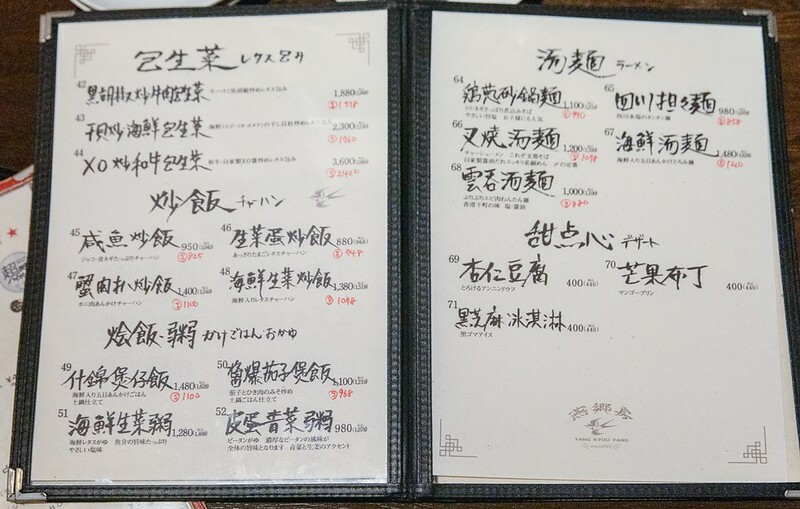 包生菜 レタス包み
42 黒胡椒炒牛肉包生菜
1,880
Ⓢ1518
43 干貝炒海鮮包生菜
2,300
Ⓢ1960
44 XO炒和牛包生菜
3,600
Ⓢ2420
炒飯 チャーハン
45 咸魚炒飯 950
Ⓢ825
ジャコ・青ネギたっぷりチャーハン
46 生菜蛋炒飯 880
Ⓢ748
あっさりたまごレタスチャーハン
47 蟹肉扒炒飯 1,400
Ⓢ1100
カニ肉あんかけチャーハン
48 海鮮生菜炒飯 1,380
Ⓢ1098
海鮮入りレタスチャーハン
烩飯・粥 かけごはん・おかゆ
49 什錦煲仔飯 1,480
Ⓢ1100
海鮮入り五目あんかけごはん
土鍋仕立て
50 醤爆茄子煲飯 1,100
Ⓢ968
茄子とひき肉のみそ炒め
土鍋ごはん仕立て
51 海鮮生菜粥 1,280
海鮮レタスがゆ 魚介の旨味たっぷり
やさしい塩味
52 皮蛋青菜粥 980
ピータンがゆ 濃厚なピータンの風味が
全体の旨味となります 青菜と生姜のアクセント
湯麺 ラーメン
64 鶏煲砂鍋麺 1,100
Ⓢ990
やさしい旨塩 お子様にも人気
65 四川担々麺 980
Ⓢ858
四川本場のタンタン麺
66 叉焼湯麺 1,200
Ⓢ1098
チャーシューメン これぞ王道そば
自家製醤油だれスッキリ麦細めん 〆の定番
67 海鮮湯麺 1,480
Ⓢ1260
海鮮入り五目あんかけとろみ麺
68 雲呑湯麺 1,000
Ⓢ880
ぷりぷりエビ肉わんたん麺
香港下町の味 塩・醤油
甜点心 デザート
69 杏仁豆腐 400(440)
とろけるアンニンドウフ
70 芒果布丁 400(440)
マンゴープリン
71 黒芝麻冰淇淋 400(440)
黒ゴマアイス
YANG KYOU FANG